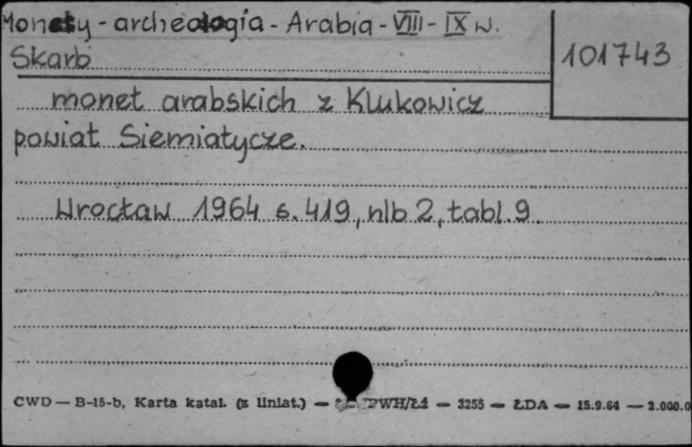 Monety - archeologia - Arabia - VIII - IX w.
101743
Skarb
monet arabskich z Klukowicz
powiat Siemiatycze.
Wrocław 1964 s. 419, nlb 2, tabl. 9
CWD — B-15-b, Karta katal. (z liniat.) — PWH/Łż — 3255 — ŁDA — 15.9.64 — 2.000.0